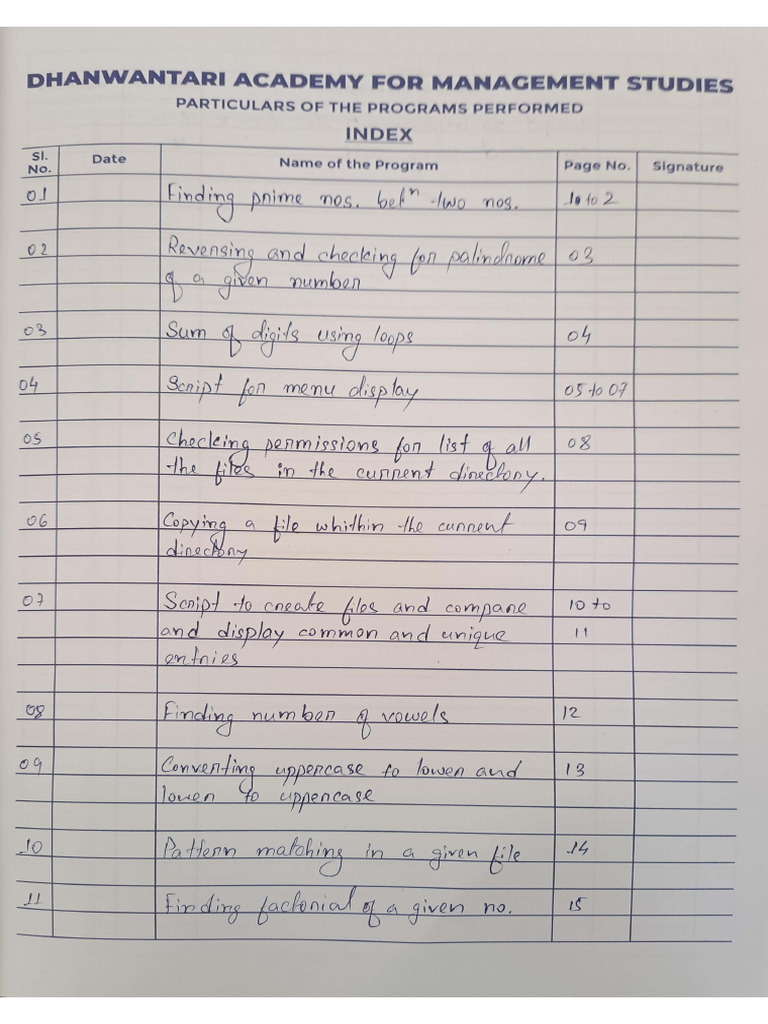 DHANWANTARI ACADEMY FOR MANAGEMENT STUDIES
PARTICULARS OF THE PROGRAMS PERFORMED
INDEX
Sl. No. Date Name of the Program Page No. Signature
01 Finding prime nos. betⁿ two nos. 10 to 2
02 Reversing and checking for palindrome 03
of a given number
03 Sum of digits using loops 04
04 Script for menu display 05 to 07
05 Checking permissions for list of all 08
the files in the current directory.
06 Copying a file whithin the current 09
directory
07 Script to create files and compare 10 to
and display common and unique 11
entries
08 Finding number of vowels 12
09 Converting uppercase to lower and 13
lower to uppercase
10 Pattern matching in a given file 14
11 Finding factorial of a given no. 15